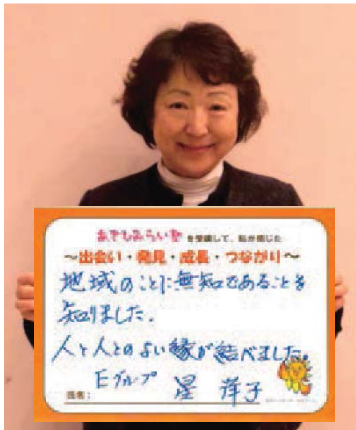 あだちみらい塾を受講して、私が感じた
～出会い・発見・成長・つながり～
地域のことに無知であることを
知りました.
人と人とのよい縁が結べました。
Eグループ 星 洋子
氏名：